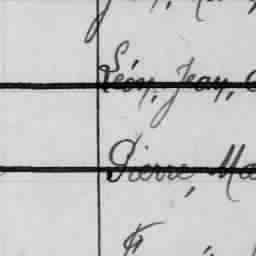 Léon, Jean,
Pierre, Ma